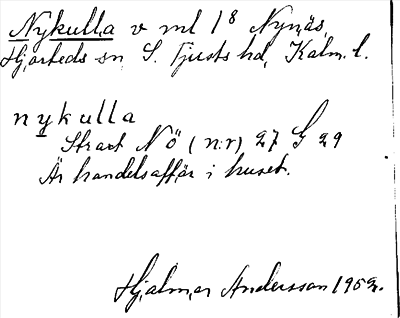 Nykulla v ml 1⁸ Nynäs,
Hjorteds sn S. Tjusts hd, Kalm. l.
nykulla
Strax NÖ (n:r) 27 G 29
Är handelsaffär i huset.
Hjalmar Andersson 1959.